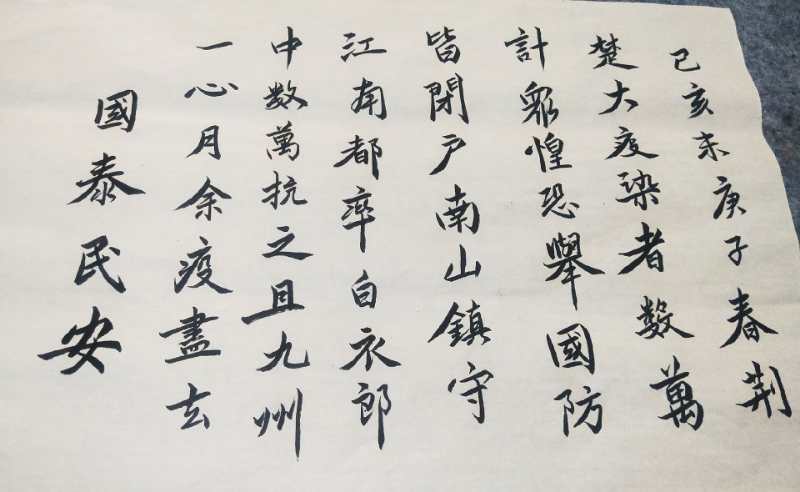 己亥末庚子春荆
楚大疫染者数萬
計眾惶恐舉國防
皆閉户南山鎮守
江南都率白衣郎
中数萬抗之且九州
一心月余疫盡去
國泰民安